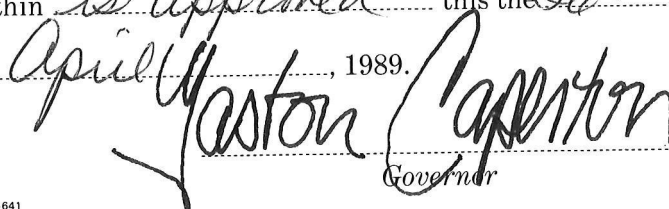 thin is approved this the
April, 1989.
Gaston Caperton
Governor
641